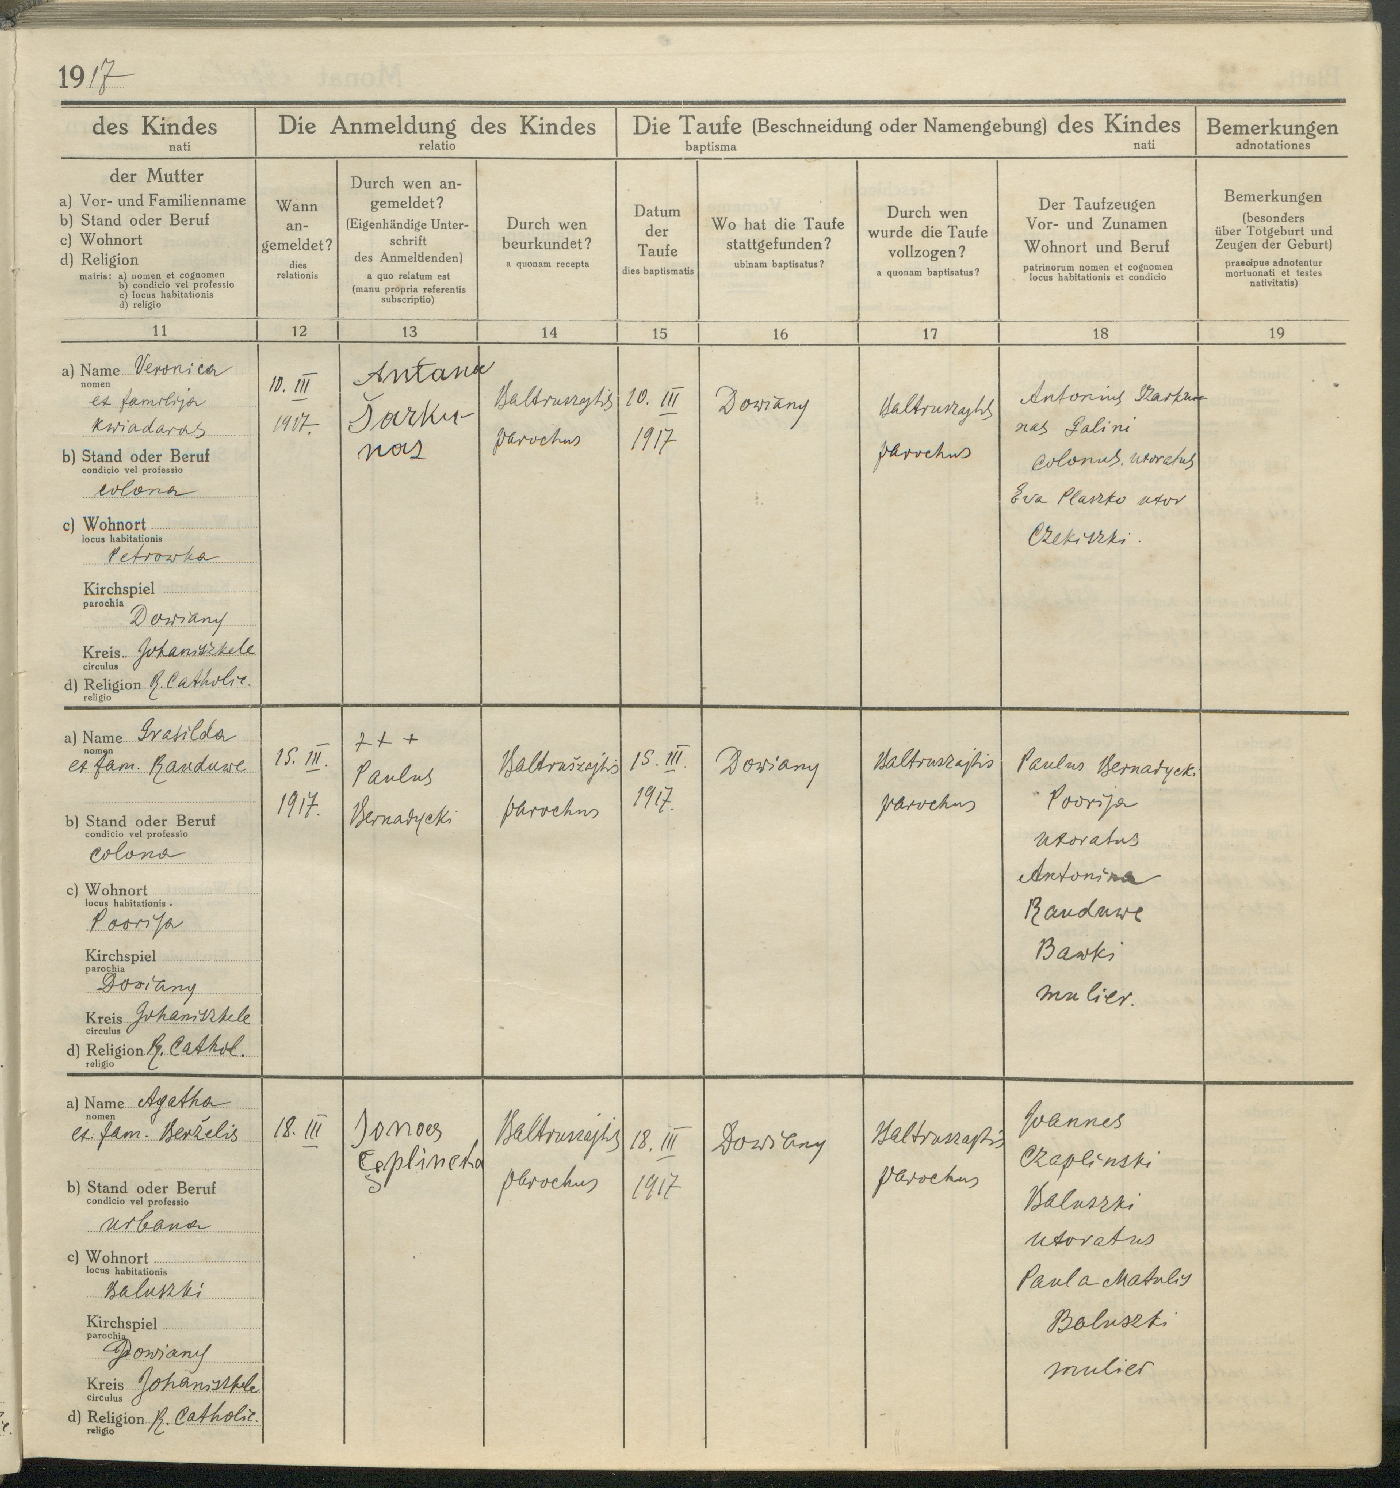 1917
des Kindes
nati
Die Anmeldung des Kindes
relatio
Die Taufe (Beschneidung oder Namengebung) des Kindes
baptisma nati
Bemerkungen
adnotationes
der Mutter
a) Vor- und Familienname
b) Stand oder Beruf
c) Wohnort
d) Religion
matris: a) nomen et cognomen
b) condicio vel professio
c) locus habitationis
d) religio
Wann
an-
gemeldet?
dies
relationis
Durch wen an-
gemeldet?
(Eigenhändige Unter-
schrift
des Anmeldenden)
a quo relatum est
(manu propria referentis
subscriptio)
Durch wen
beurkundet?
a quonam recepta
Datum
der
Taufe
dies baptismatis
Wo hat die Taufe
stattgefunden?
ubinam baptisatus?
Durch wen
wurde die Taufe
vollzogen?
a quonam baptisatus?
Der Taufzeugen
Vor- und Zunamen
Wohnort und Beruf
patrinorum nomen et cognomen
locus habitationis et condicio
Bemerkungen
(besonders
über Totgeburt und
Zeugen der Geburt)
praecipue adnotentur
mortuonati et testes
nativitatis)
11 12 13 14 15 16 17 18 19
a) Name Veronica
nomen
ex familija
Kwiadaras
b) Stand oder Beruf
condicio vel professio
colona
c) Wohnort
locus habitationis
Petrowka
Kirchspiel
parochia
Dowiany
Kreis Johaniszkele
circulus
d) Religion R. Catholic.
religio
10. III
1917.
Antana
Šarku-
nas
Baltruszajtis
parochus
10. III
1917
Dowiany
Baltruszajtis
parochus
Antonius Szarku-
nas Galini
colonus, uxoratus
Eva Plaszko uxor
Czekiszki.
a) Name Grasilda
nomen
ex fam. Rauduwe
b) Stand oder Beruf
condicio vel professio
colona
c) Wohnort
locus habitationis
Poorija
Kirchspiel
parochia
Dowiany
Kreis Johaniszkele
circulus
d) Religion R. Cathol.
religio
15. III.
1917.
+ + +
Paulus
Bernadycki
Baltruszajtis
parochus
15. III.
1917.
Dowiany
Baltruszajtis
parochus
Paulus Bernadycki
Poorija
uxoratus
Antonina
Rauduwe
Bawki
mulier.
a) Name Agatha
nomen
ex fam. Berželis
b) Stand oder Beruf
condicio vel professio
urbana
c) Wohnort
locus habitationis
Baluszki
Kirchspiel
parochia
Dowiany
Kreis Johaniszkele
circulus
d) Religion R. Catholic.
religio
18. III
Jonas
Baltruszajtis
parochus
18. III
1917
Dowiany
Baltruszajtis
parochus
Joannes
Czaplinski
Baluszki
uxoratus
Paula Matulis
Baluszki
mulier